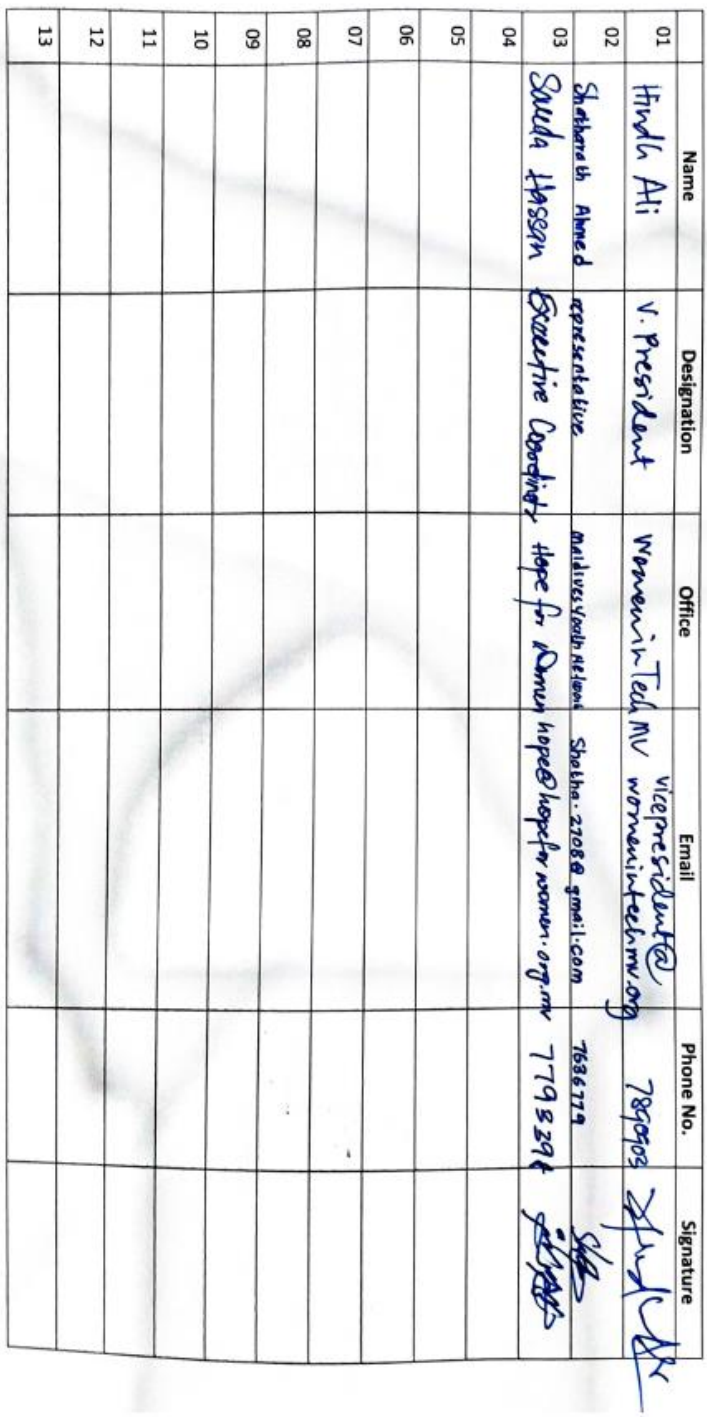 Name Designation Office Email Phone No. Signature
01 Hindh Ali V. President Women in Tech MV vicepresident@
womenintechmv.org
02 Ahmed representative maldives youth network 7636779
03 Hassan Executive Coordinator Hope for Women hope@hopeforwomen.org.mv
04
05
06
07
08
09
10
11
12
13